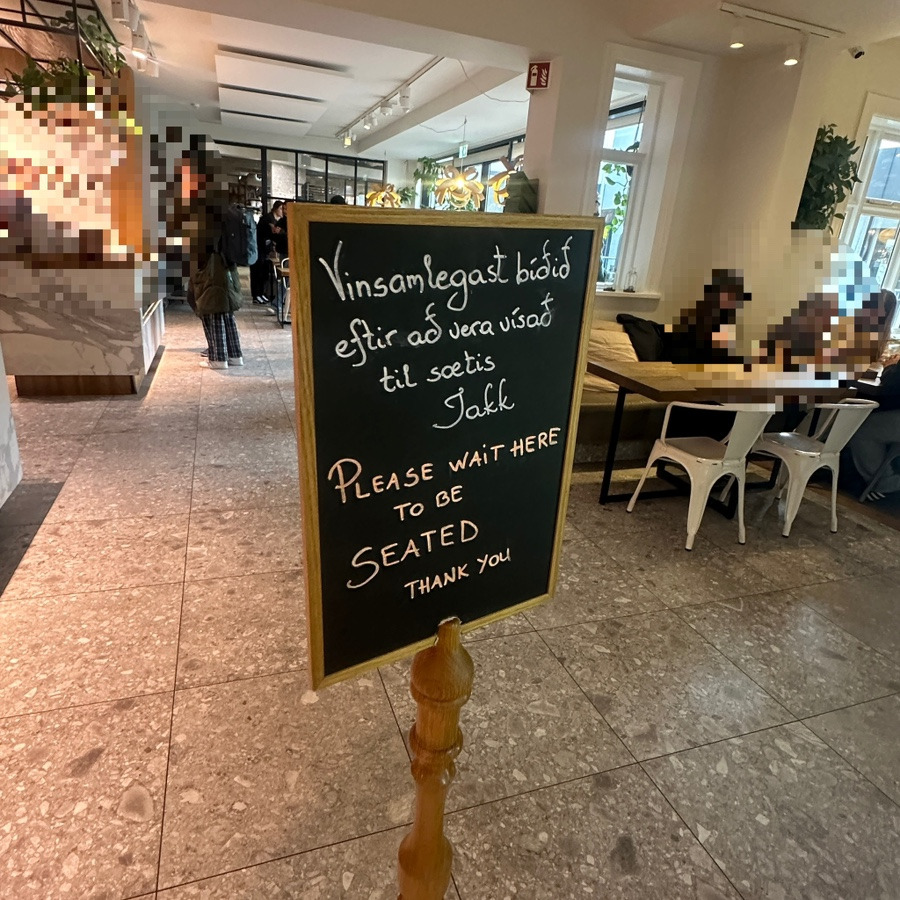 Vinsamlegast bíðið
eftir að vera vísað
til sætis
Takk
PLEASE WAIT HERE
TO BE
SEATED
THANK YOU